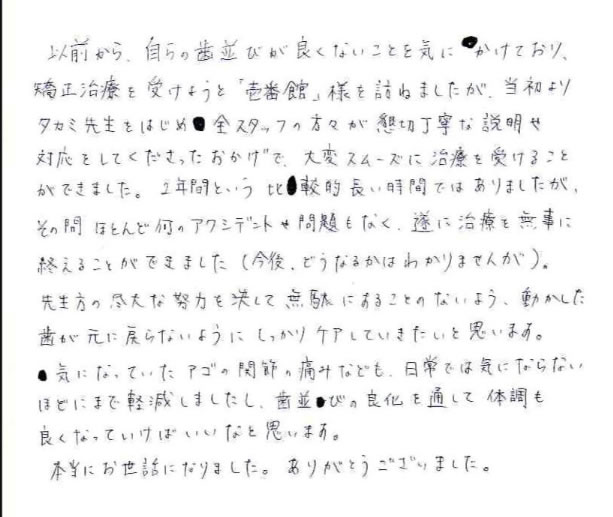 以前から、自らの歯並びが良くないことを気にかけており、
矯正治療を受けようと「壱番館」様を訪ねましたが、当初より
タカミ先生をはじめ全スタッフの方々が懇切丁寧な説明や
対応をしてくださったおかげで、大変スムーズに治療を受けること
ができました。2年間という比較的長い時間ではありましたが、
その間ほとんど何のアクシデントや問題もなく、遂に治療を無事に
終えることができました(今後、どうなるかはわかりませんが)。
先生方の尽大な努力を決して無駄にすることのないよう、動かした
歯が元に戻らないようにしっかりケアしていきたいと思います。
気になっていたアゴの関節の痛みなども、日常では気にならない
ほどにまで軽減しましたし、歯並びの良化を通して体調も
良くなっていけばいいなと思います。
本当にお世話になりました。ありがとうございました。